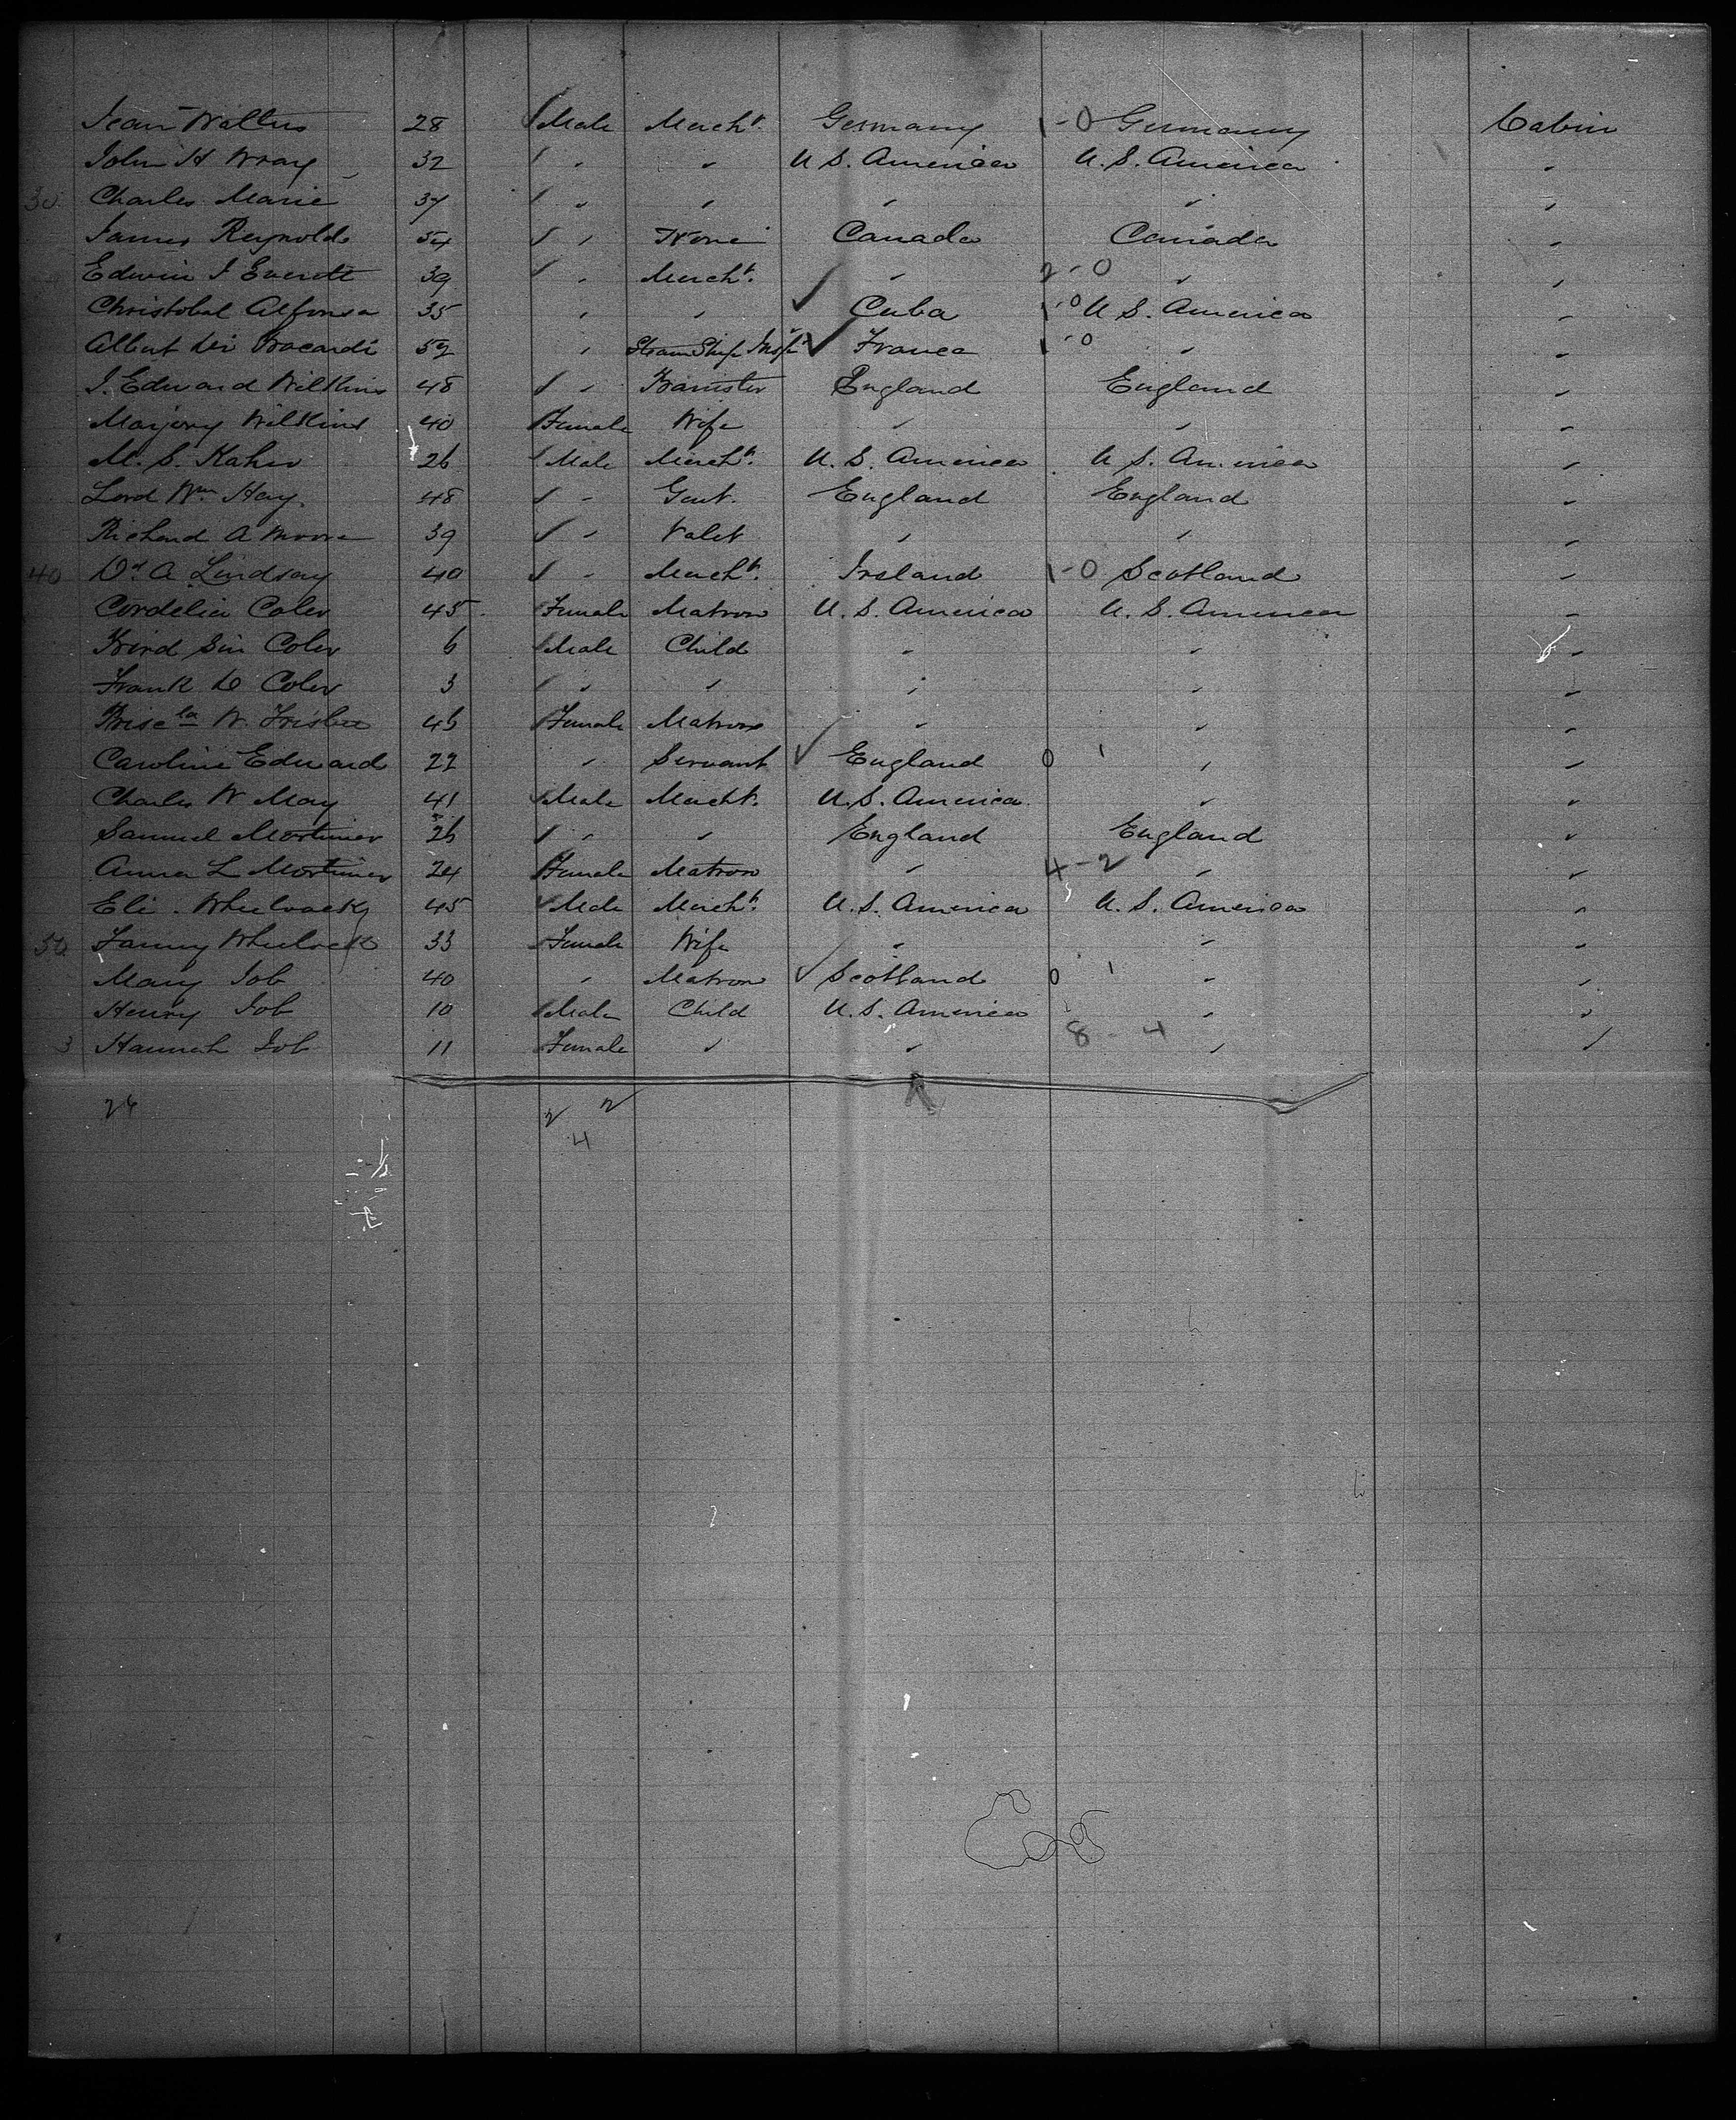 Jean Walters 28 Male Mercht. Germany 1-0 Germany Cabin
John H Wray 32 " " U.S. America U.S. America "
30 Charles Marie 37 " " " " "
James Reynolds 54 " None Canada Canada "
Edwin J Everett 39 " Mercht. " 2-0 " "
Christobal Alfonsa 35 " " Cuba 1-0 U.S. America "
Albert 52 " Steam Ship France 1-0 " "
J. Edward Wilkins 48 " Barrister England England "
Marjory Wilkins 40 Female Wife " " "
M. S. Kahn 26 Male Mercht. U.S. America U.S. America "
Lord Wm Hay 48 " Gent. England England "
Richard A Moore 39 " Valet " " "
40 Dr A Lindsay 40 " Mercht. Ireland 1-0 Scotland "
Cordelia Coler 45 Female Matron U.S. America U.S. America "
Coler 6 Male Child " " "
Frank D Coler 3 " " " " "
W. Frisbee 46 Female Matron " " "
Caroline Edward 22 " Servant England 0 1 " "
Charles W May 41 Male Mercht. U.S. America " "
Samuel Mortimer 26 " " England England "
Anna L Mortimer 24 Female Matron " 4-2 " "
Eli Wheelock 45 Male Mercht. U.S. America U.S. America "
50 Fanny Wheelock 33 Female Wife " " "
Mary Job 40 " Matron Scotland 0 1 " "
Henry Job 10 Male Child U.S. America " "
3 Hannah Job 11 Female " " 8-4 " "
26 2 2
4